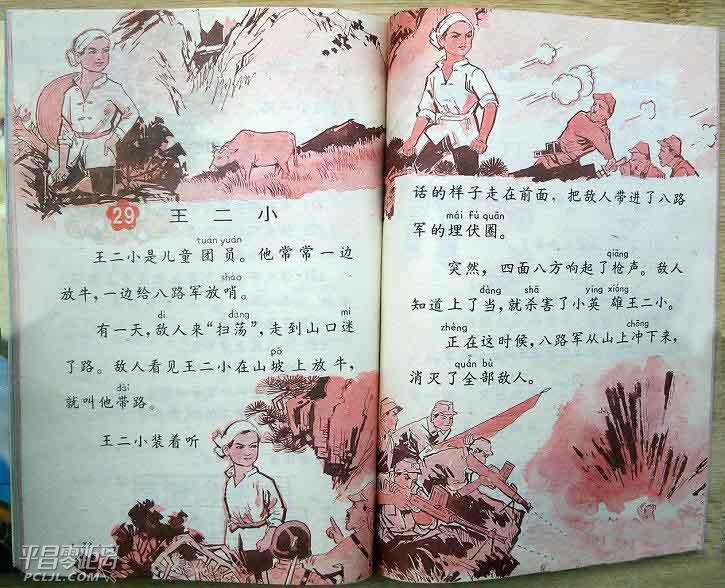 29 王二小
tuán yuán
王二小是儿童团员。他常常一边
shào
放牛,一边给八路军放哨。
dí dàng mí
有一天,敌人来“扫荡”,走到山口迷
pō
了路。敌人看见王二小在山坡上放牛,
dài
就叫他带路。
王二小装着听
话的样子走在前面,把敌人带进了八路
mái fú quān
军的埋伏圈。
qiāng
突然,四面八方响起了枪声。敌人
dàng shā yīng xióng
知道上了当,就杀害了小英雄王二小。
zhèng chōng
正在这时候,八路军从山上冲下来,
quán bù
消灭了全部敌人。
平昌零距离
PCLJL.COM